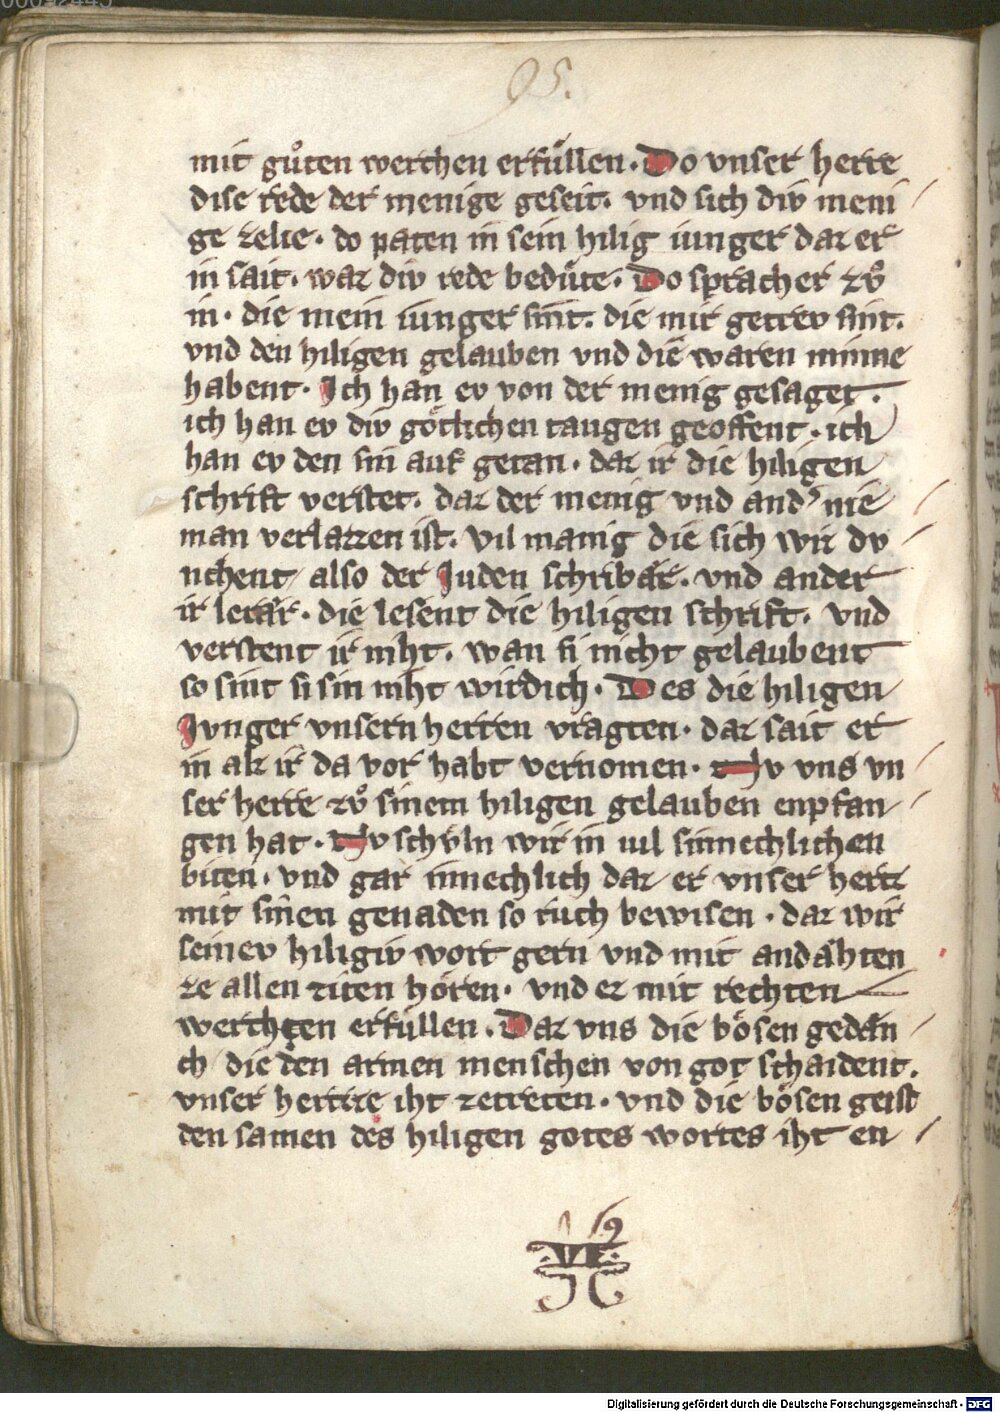 95.
mit gůten werchen erfüllen. Do vnser herre
dise rede der menige geseit. vnd sich div meni
ge zelie. do paten in sein hilig iunger daz er
in sait. waz div rede bedüte. Do sprach er zů
in. die mein iunger sint. die mir getrev sint.
vnd den hiligen gelauben vnd die waren minne
habent. Ich han ev von der menig gesaget.
ich han ev div götlichen taugen geoffent. ich
han ev den sin auf getan. daz ir die hiligen
schrift verstet. daz der menig vnd and' nie
man verlazzen ist. vil manig die sich wir dv
nchent also der Juden schribär. vnd ander
ir lerär. die lesent die hiligen schrift. vnd
verstent ir niht. wan si nicht gelaubent
so sint si sin niht wirdich. Des die hiligen
Jvnger vnsern herren vragten. daz sait er
in alz ir da vor habt vernomen. Nv vns vn
ser herre zů sinem hiligen gelauben enpfan
gen hat. Nv schvln wir in vil sinnechlichen
biten. vnd gar innechlich daz er vnser hertz
mit sinen genaden so ruch bewisen. daz wir
seinev hiligiv wort gern vnd mit andähten
ze allen ziten hören. vnd ez mit rechten
werchen erfullen. Daz vns die bösen gedän
ch die den armen menschen von got schaident.
vnser hertze iht zetreten. vnd die bösen geist
den samen des hiligen gotes wortes iht en
Digitalisierung gefördert durch die Deutsche Forschungsgemeinschaft - DFG